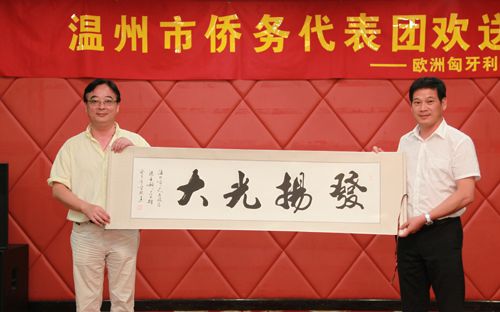 温州市侨务代表团欢迎
——欧洲匈牙利
發揚光大